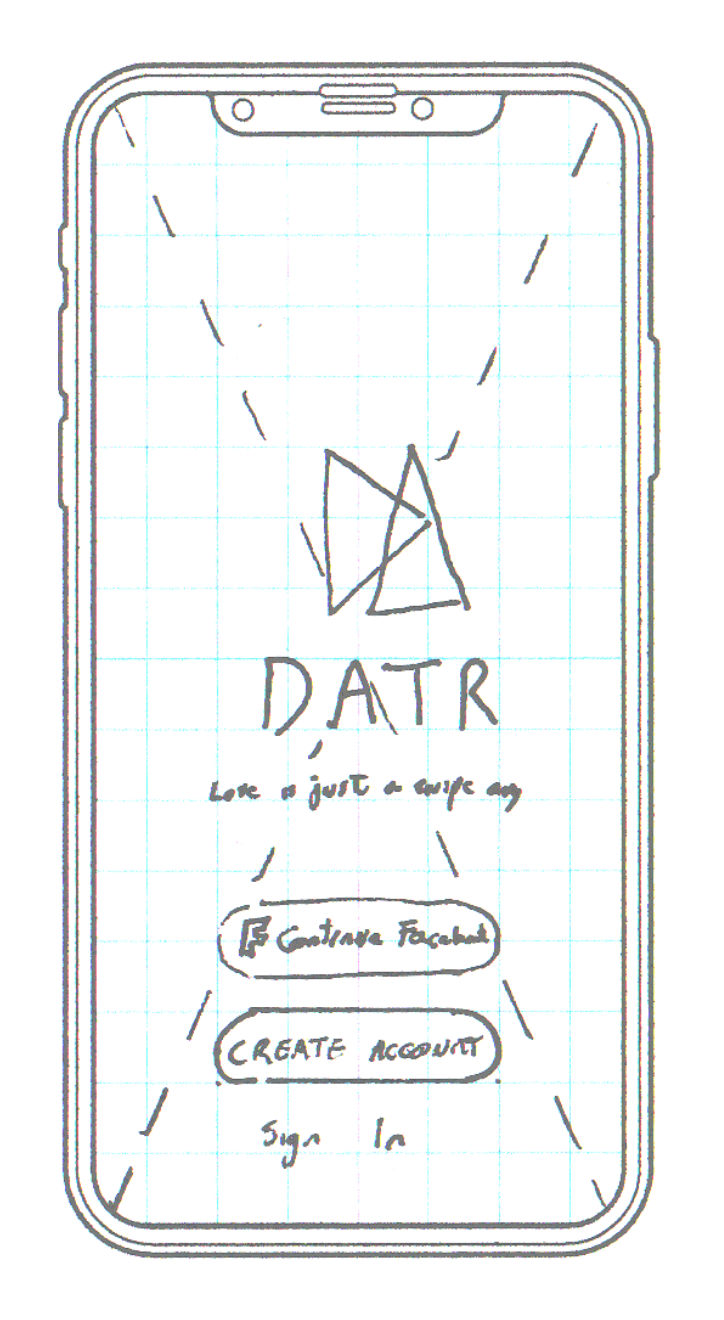 DATR
Love is just a swipe away
Continue Facebook
CREATE ACCOUNT
Sign In